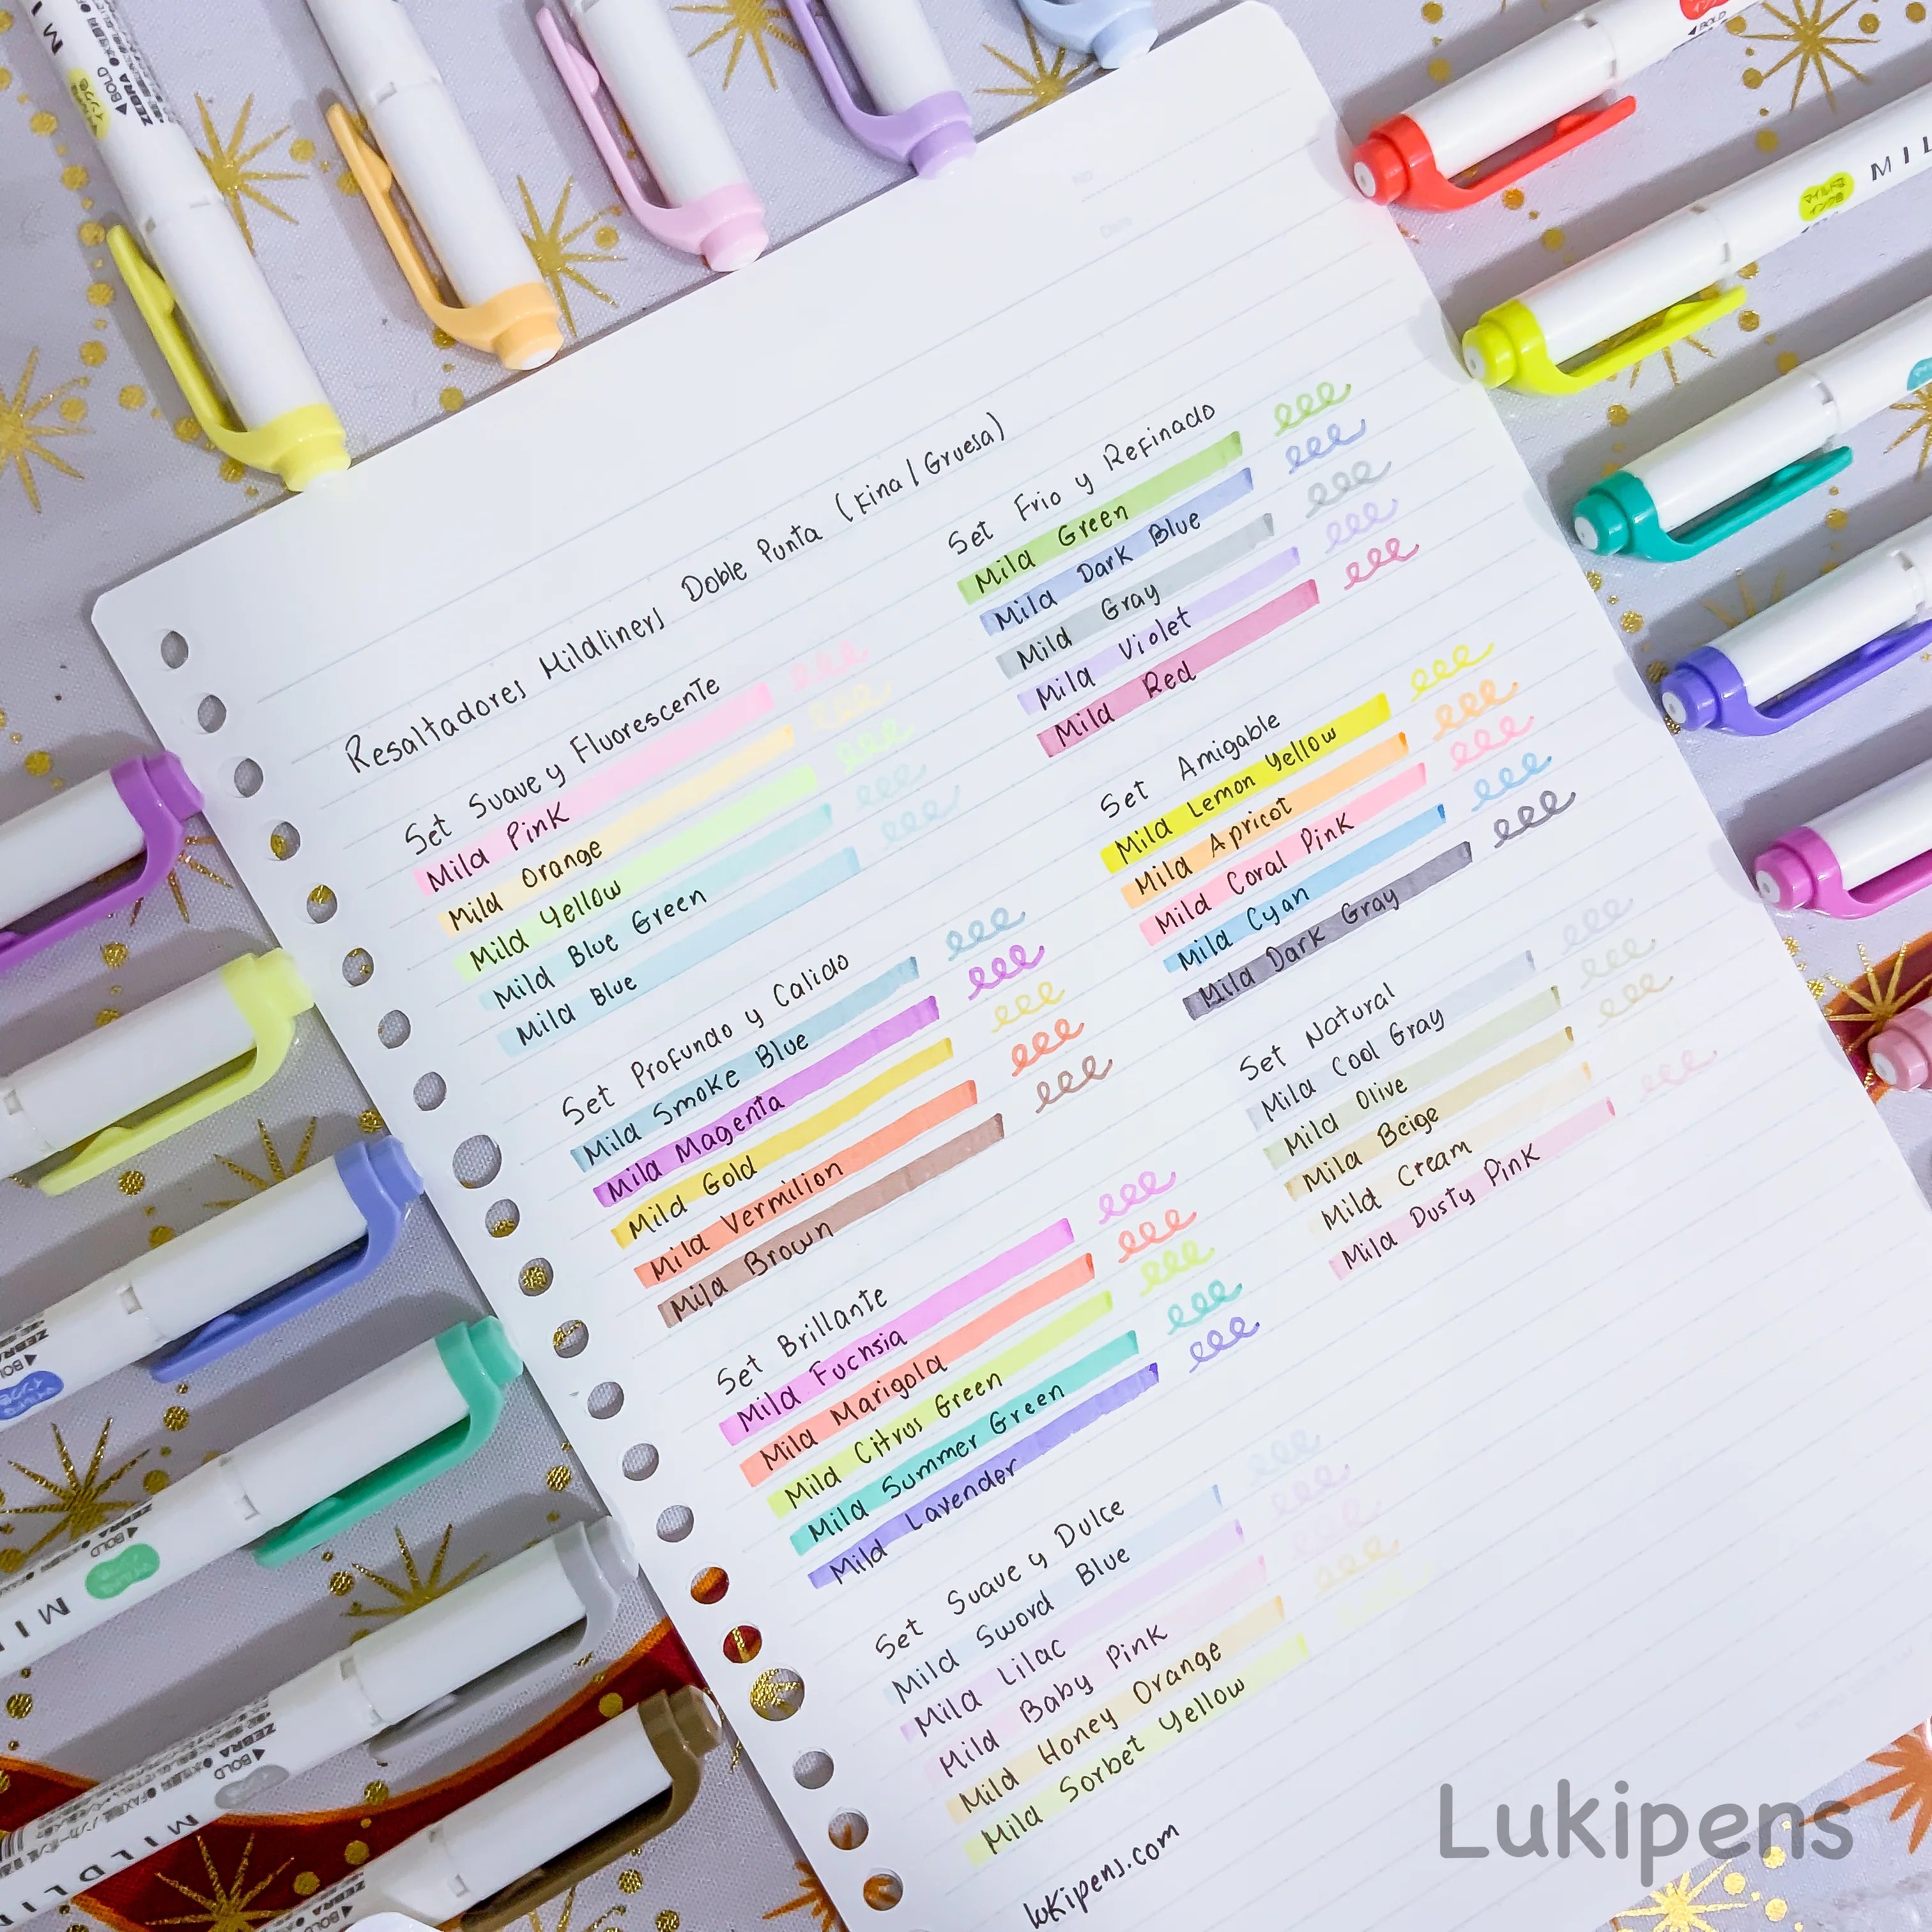 Resaltadores Mildliners Doble Punta (Fina / Gruesa)
Set Suave y Fluorescente
Mild Pink
Mild Orange
Mild Yellow
Mild Blue Green
Mild Blue
Set Profundo y Calido
Mild Smoke Blue
Mild Magenta
Mild Gold
Mild Vermilion
Mild Brown
Set Brillante
Mild Fuchsia
Mild Marigold
Mild Citrus Green
Mild Summer Green
Mild Lavender
Set Suave y Dulce
Mild Sword Blue
Mild Lilac
Mild Baby Pink
Mild Honey Orange
Mild Sorbet Yellow
lukipens.com
Set Frio y Refinado
Mild Green
Mild Dark Blue
Mild Gray
Mild Violet
Mild Red
Set Amigable
Mild Lemon Yellow
Mild Apricot
Mild Coral Pink
Mild Cyan
Mild Dark Gray
Set Natural
Mild Cool Gray
Mild Olive
Mild Beige
Mild Cream
Mild Dusty Pink
Date
BOLD
ZEBRA
BOLD
MIL
マイルドな
インク色
ZEBRA
BOLD
ZEBRA
BOLD
MI
ZEBRA
BOLD
MILDLI
ZEBRA
BOLD
Lukipens